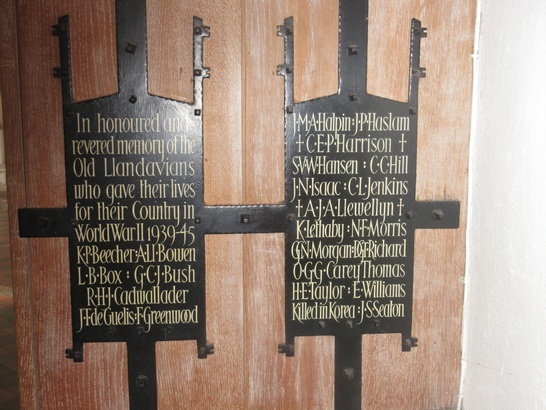 In honoured and
revered memory of the
Old Llandavians
who gave their lives
for their Country in
World War II 1939-45
K·P·Beecher:A·L·J·Bowen
L·B·Box : G·C·J·Bush
R·H·J·Cadwallader
J·F·deGuelis:F·Greenwood
J·M·A·Halpin:J·P·Haslam
†C·E·P·Harrison†
S·V·W·Hansen : C·C·Hill
J·N·Isaac : C·L·Jenkins
†A·J·A·Llewellyn†
K·Lethaby : N·F·Morris
G·N·Morgan: Richard
O·G·G·Carey Thomas
H·E·Taylor : E·Williams
Killed in Korea : J·S·Seaton